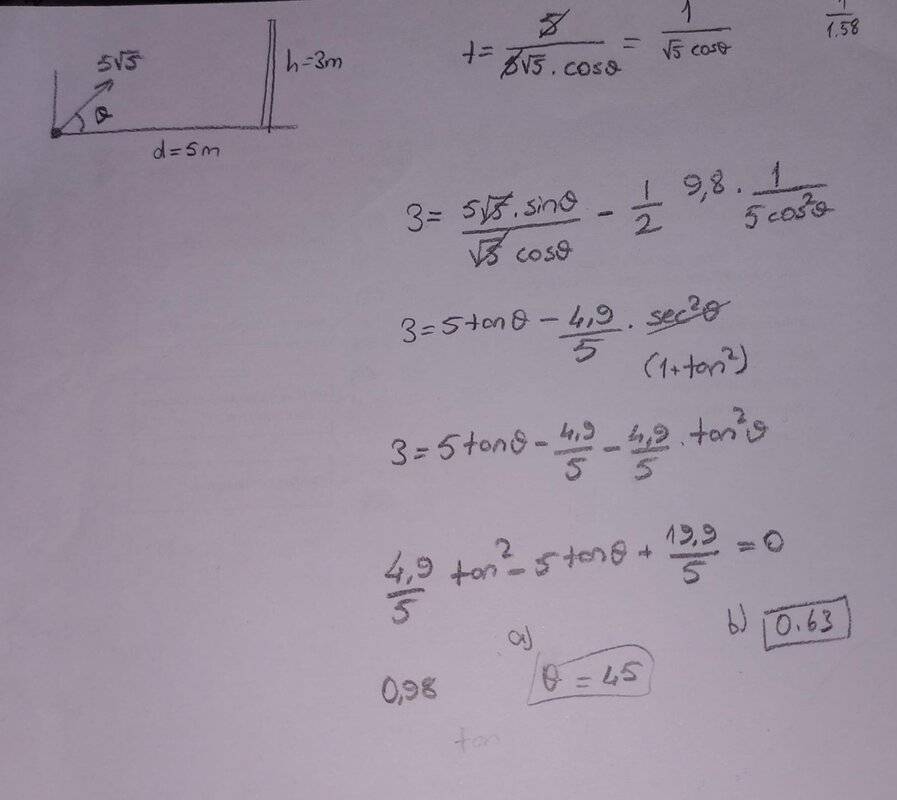 5√5
θ
h=3m
d=5m
t= 5/(5√5 . cosθ) = 1/(√5 cosθ)
1.58
3= (5√5 . sinθ)/(√5 cosθ) - 1/2 9,8 . 1/(5 cos²θ)
3=5tanθ - 4,9/5 . sec²θ
(1+tan²)
3=5tanθ - 4,9/5 - 4,9/5 . tan²θ
4,9/5 tan² - 5tanθ + 19,9/5 = 0
a) θ = 45
b) 0.63
0,98
tan